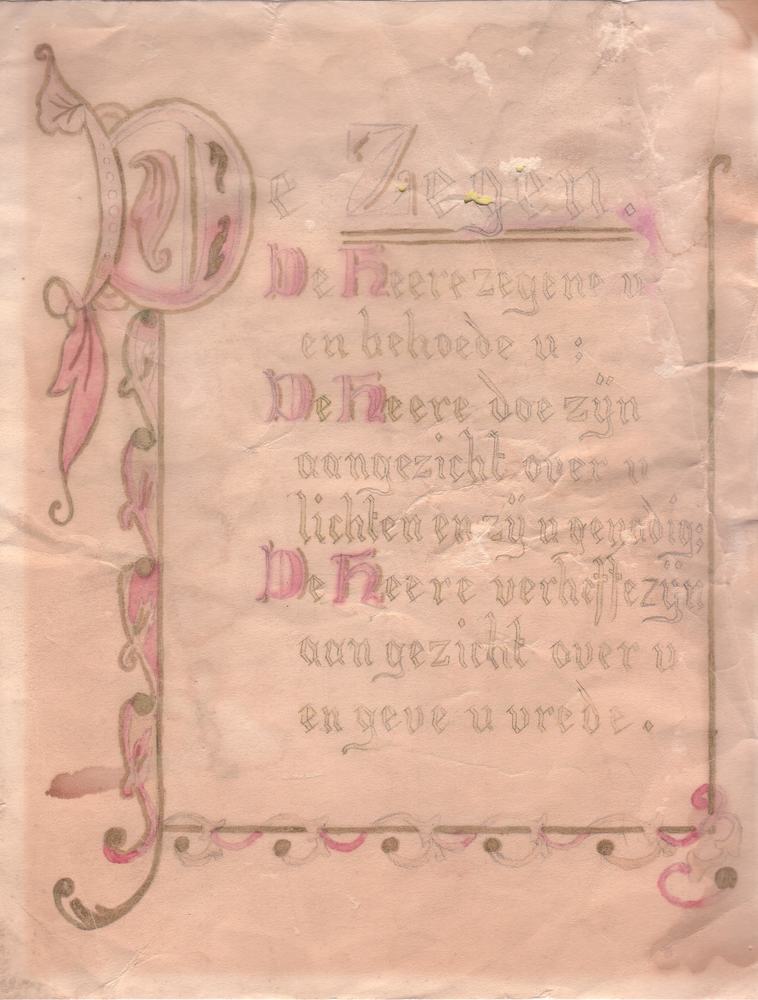 De Zegen.
De Heere zegene u
en behoede u:
De Heere doe zijn
aangezicht over u
lichten en zij u genadig;
De Heere verheffe zijn
aangezicht over u
en geve u vrede.